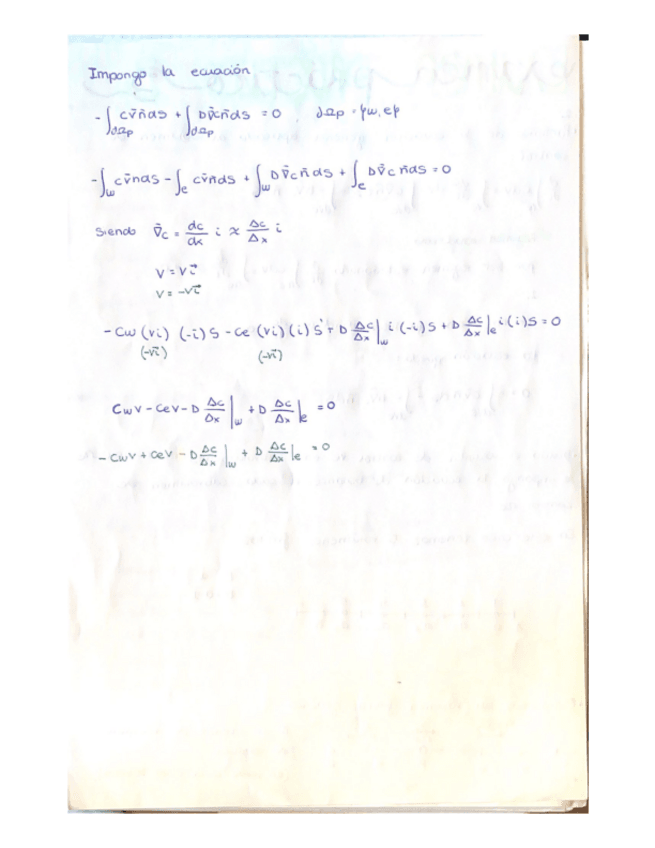 Impongo la ecuación
- ∫_∂Ωp c v̄ n̄ ds + ∫_∂Ωp D ∇̄c n̄ ds = 0 , ∂Ωp = {w, e}
- ∫_w c v̄ n̄ ds - ∫_e c v̄ n̄ ds + ∫_w D ∇̄c n̄ ds + ∫_e D ∇̄c n̄ ds = 0
Siendo ∇̄c = dc/dx i ≈ Δc/Δx i
v = v i⃗
v = -v i⃗
- Cw (vi) (-i) S - Ce (vi) (i) S + D Δc/Δx|w i (-i) S + D Δc/Δx|e i (i) S = 0
(-v i⃗) (-v i⃗)
Cw v - Ce v - D Δc/Δx|w + D Δc/Δx|e = 0
- Cw v + Ce v - D Δc/Δx|w + D Δc/Δx|e = 0